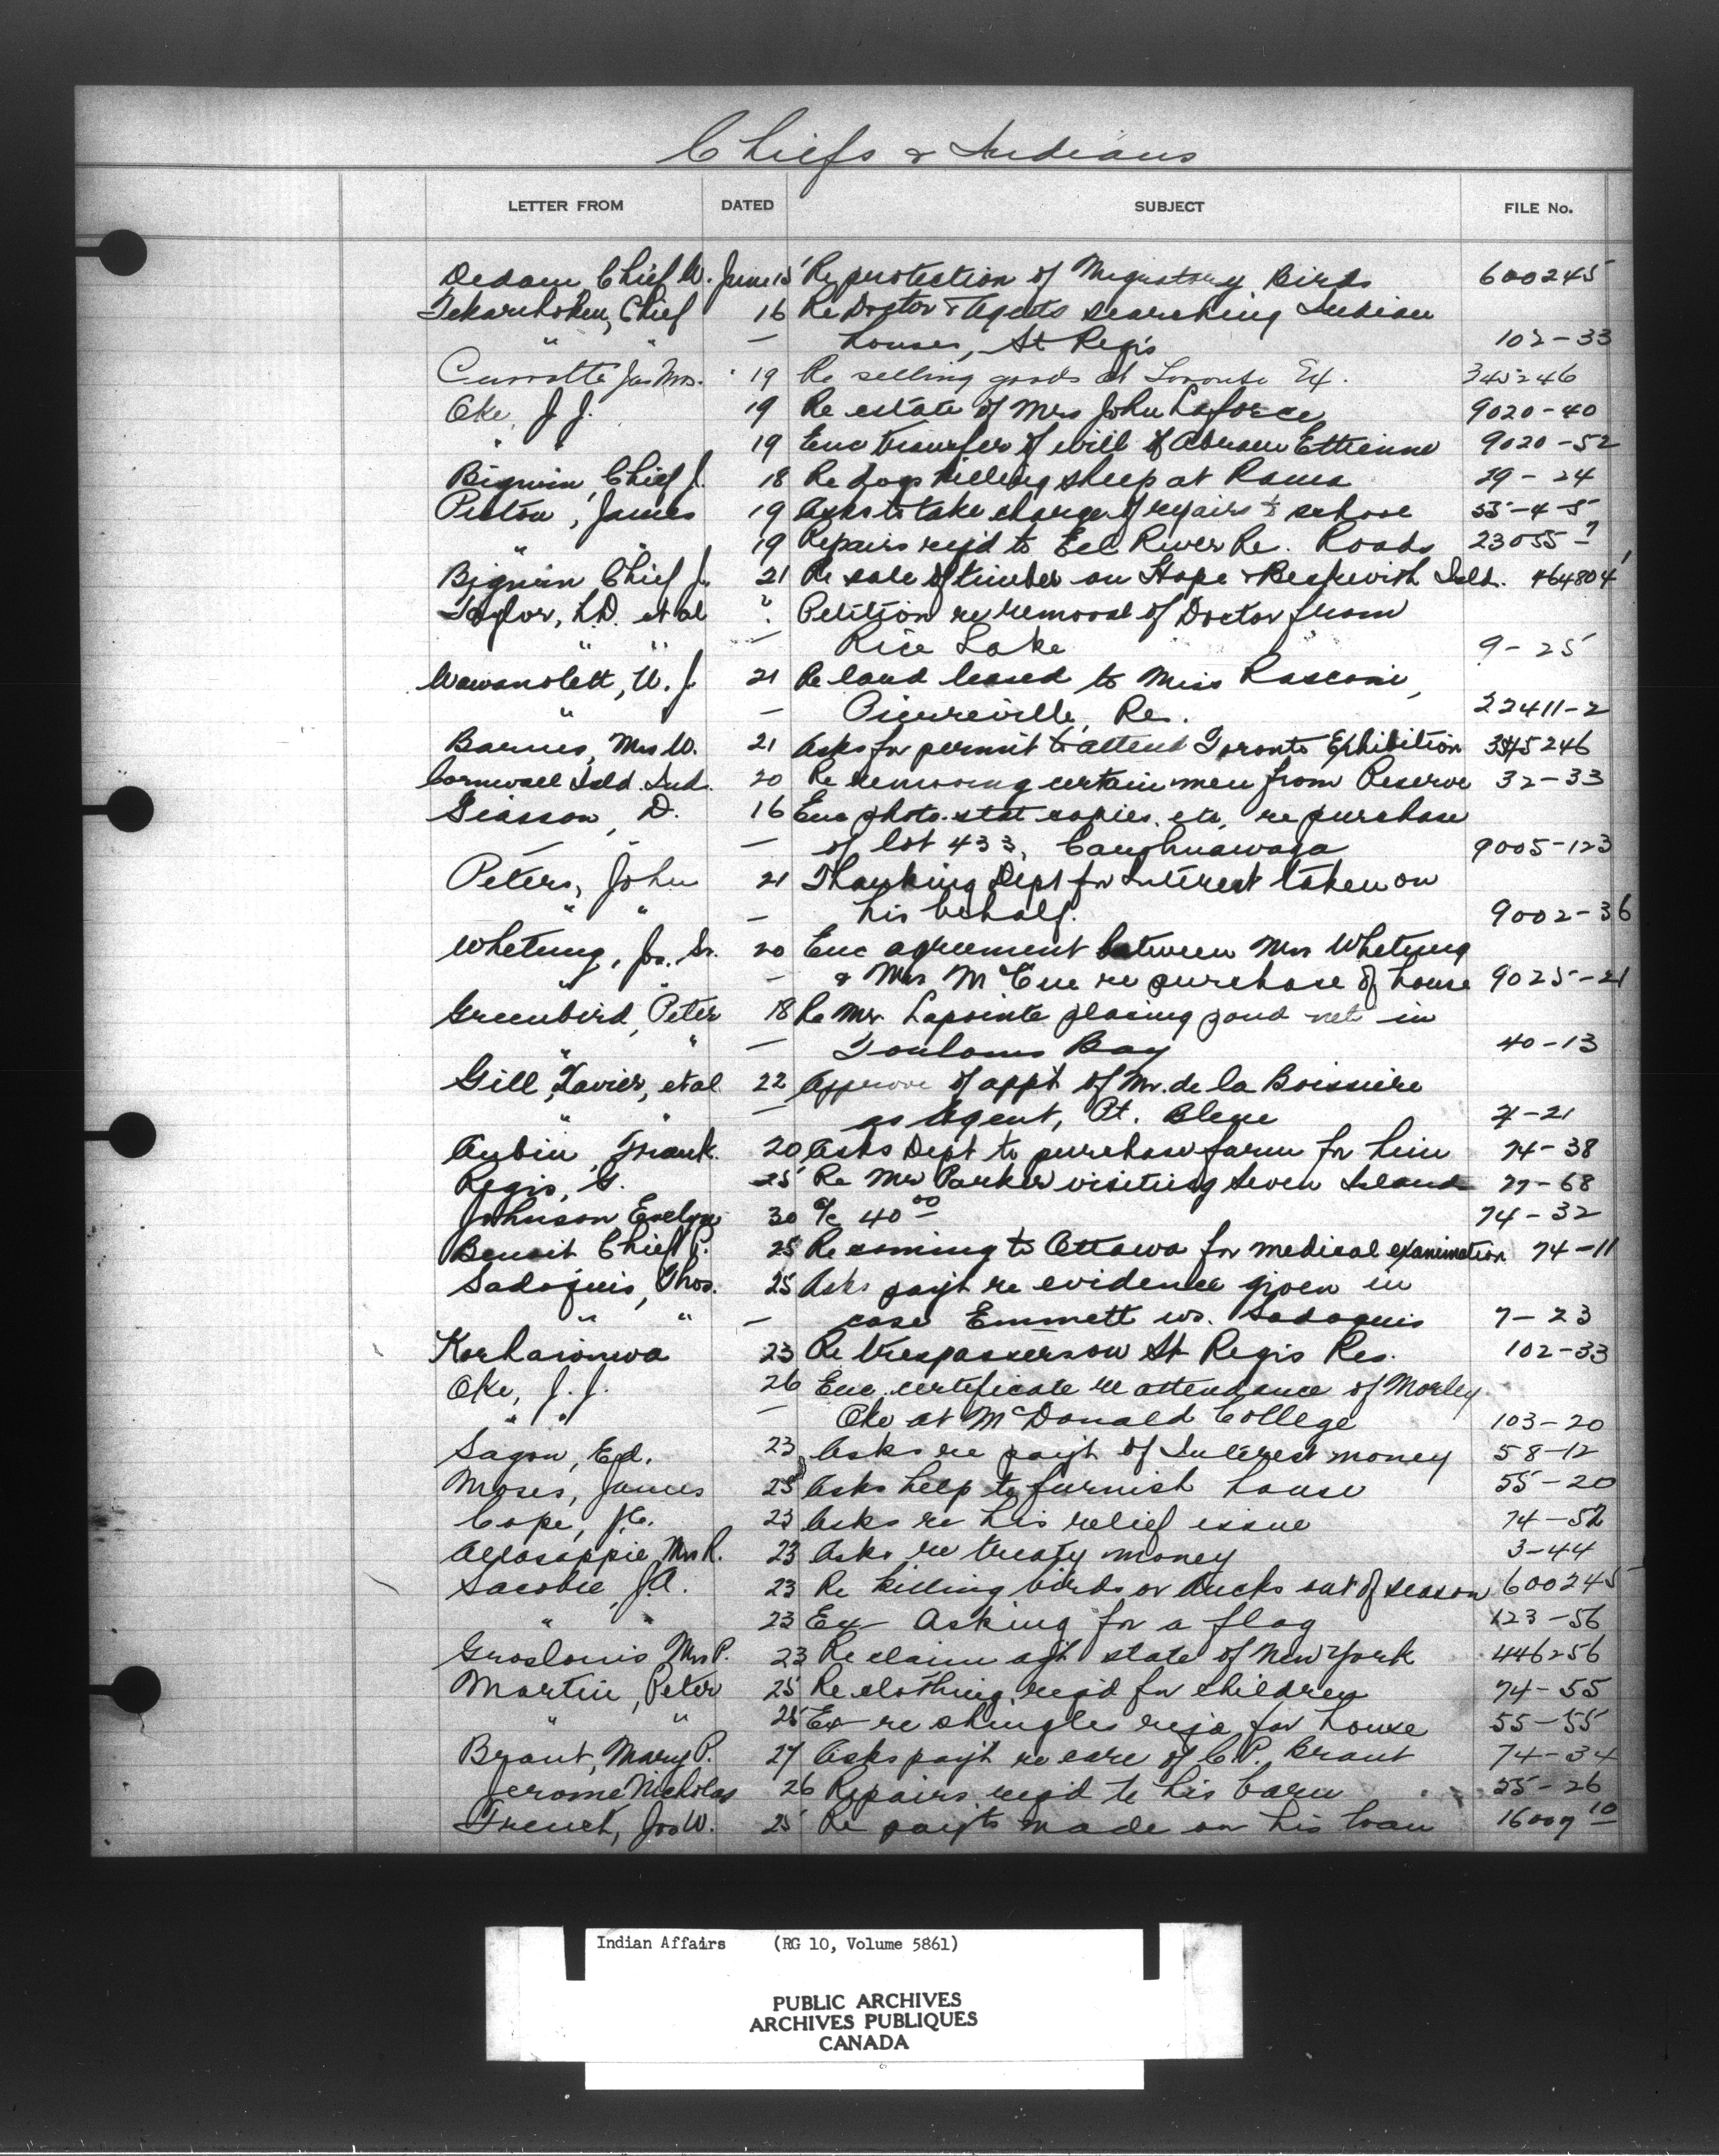 Chiefs & Indians
LETTER FROM DATED SUBJECT FILE No.
Dedam, Chief W. June 15 Re protection of Migratory Birds 600245
Tekarihoken, Chief 16 Re Doctor & Agents searching Indian
" " — houses, St Regis 102-33
Currotte Jas Mrs. 19 Re selling goods at Toronto Ex. 345246
Oke, J. J. 19 Re estate of Mrs John Laforce 9020-40
" " 19 Enc transfer of will of Abram Ettienne 9020-52
Bigwin, Chief J. 18 Re dogs killing sheep at Rama 29-24
Pictou, James 19 Asks to take charge of repairs to school 55-4-5
" " 19 Repairs reqd to Eel River Re. Roads 23055-7
Bigwin Chief J. 21 Re sale of timber on Hope & Beckwith Isld. 464804
Taylor, L.D. et al " Petition re removal of Doctor from
" " — Rice Lake 9-25
Wawanolett, W. J. 21 Re land leased to Miss Rasconi,
" — Pierreville, Re. 22411-2
Barnes, Mrs W. 21 Asks for permit to attend Toronto Exhibition 345246
Cornwall Isld. Ind. 20 Re removing certain men from Reserve 32-33
Giasson, D. 16 Enc photo-stat copies, etc, re purchase
— " — of lot 433, Caughnawaga 9005-123
Peters, John 21 Thanking Dept for Interest taken on
" " — his behalf. 9002-36
Whetung, Jos. Sr. 20 Enc agreement between Mrs Whetung
" " — & Mrs McCue re purchase of house 9025-21
Greenbird, Peter 18 Re Mr. Lapointe placing pound net in
" " — Bay 40-13
Gill, Xavier, et al 22 Approve of appt of Mr. de la Boissiere
" " — as Agent, Pt. Bleue 7-21
Aubin, Frank. 20 Asks Dept to purchase farm for him 74-38
Regis, G. 25 Re Mr Parker visiting Seven Islands 77-68
Johnson Evelyn 30 a/c 40 00 74-32
Benoit Chief P. 25 Re coming to Ottawa for medical examination 74-11
Sadoquis, Thos. 25 Asks payt re evidence given in
" " — case Emmett vs. Sadoquis 7-23
Korhaionwa 23 Re trespassers on St Regis Res. 102-33
Oke, J. J. 26 Enc. certificate re attendance of Morley
" " — Oke at McDonald College 103-20
Sagon, Ed. 23 Asks re payt of Interest money 58-12
Moses, James 25 Asks help to furnish house 55-20
Cope, J.C. 23 Asks re his relief issue 74-52
Allasappie, Mrs R. 23 Asks re treaty money 3-44
Sacobie, J.A. 23 Re killing birds or ducks out of season 600245
" " 23 Ex - Asking for a flag 123-56
Groslouis Mrs P. 23 Re claim agt state of New York 446256
Martin, Peter 25 Re clothing reqd for children 74-55
" " 25 Ex - re shingles reqd for house 55-55
Brant, Mary P. 27 Asks payt re care of C.P. Brant 74-34
Jerome Nicholas 26 Repairs reqd to his barn 55-26
French, Jos W. 25 Re payts made on his loan 16009 10
Indian Affairs (RG 10, Volume 5861)
PUBLIC ARCHIVES
ARCHIVES PUBLIQUES
CANADA